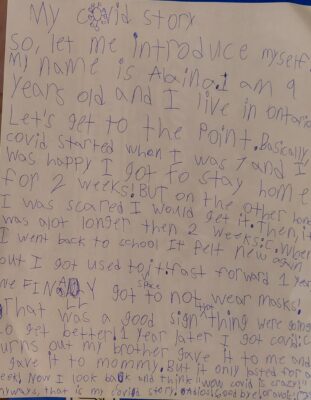 My covid story
So, let me introduce myself.
My name is Abaina.I am 9
years old and I live in ontario
Let's get to the Point. Basically
covid started when I was 7 and I
was happy I got to stay home
for 2 weeks! BUT on the other hand
I was scared I would get it. Then, it
was alot longer then 2 weeks:C. When
I went back to school It felt new again
but I got used to it. fast forward 1 year
we FINALLY got to not wear masks!
That was a good sign thing were going
to get better. 1 year later I got covid:C
turns out my brother gave it to me and
I gave it to mommy. But it only lasted for a
week! Now I look back and think "wow covid is crazy!"
Anyways, that is my covid story. goodbye